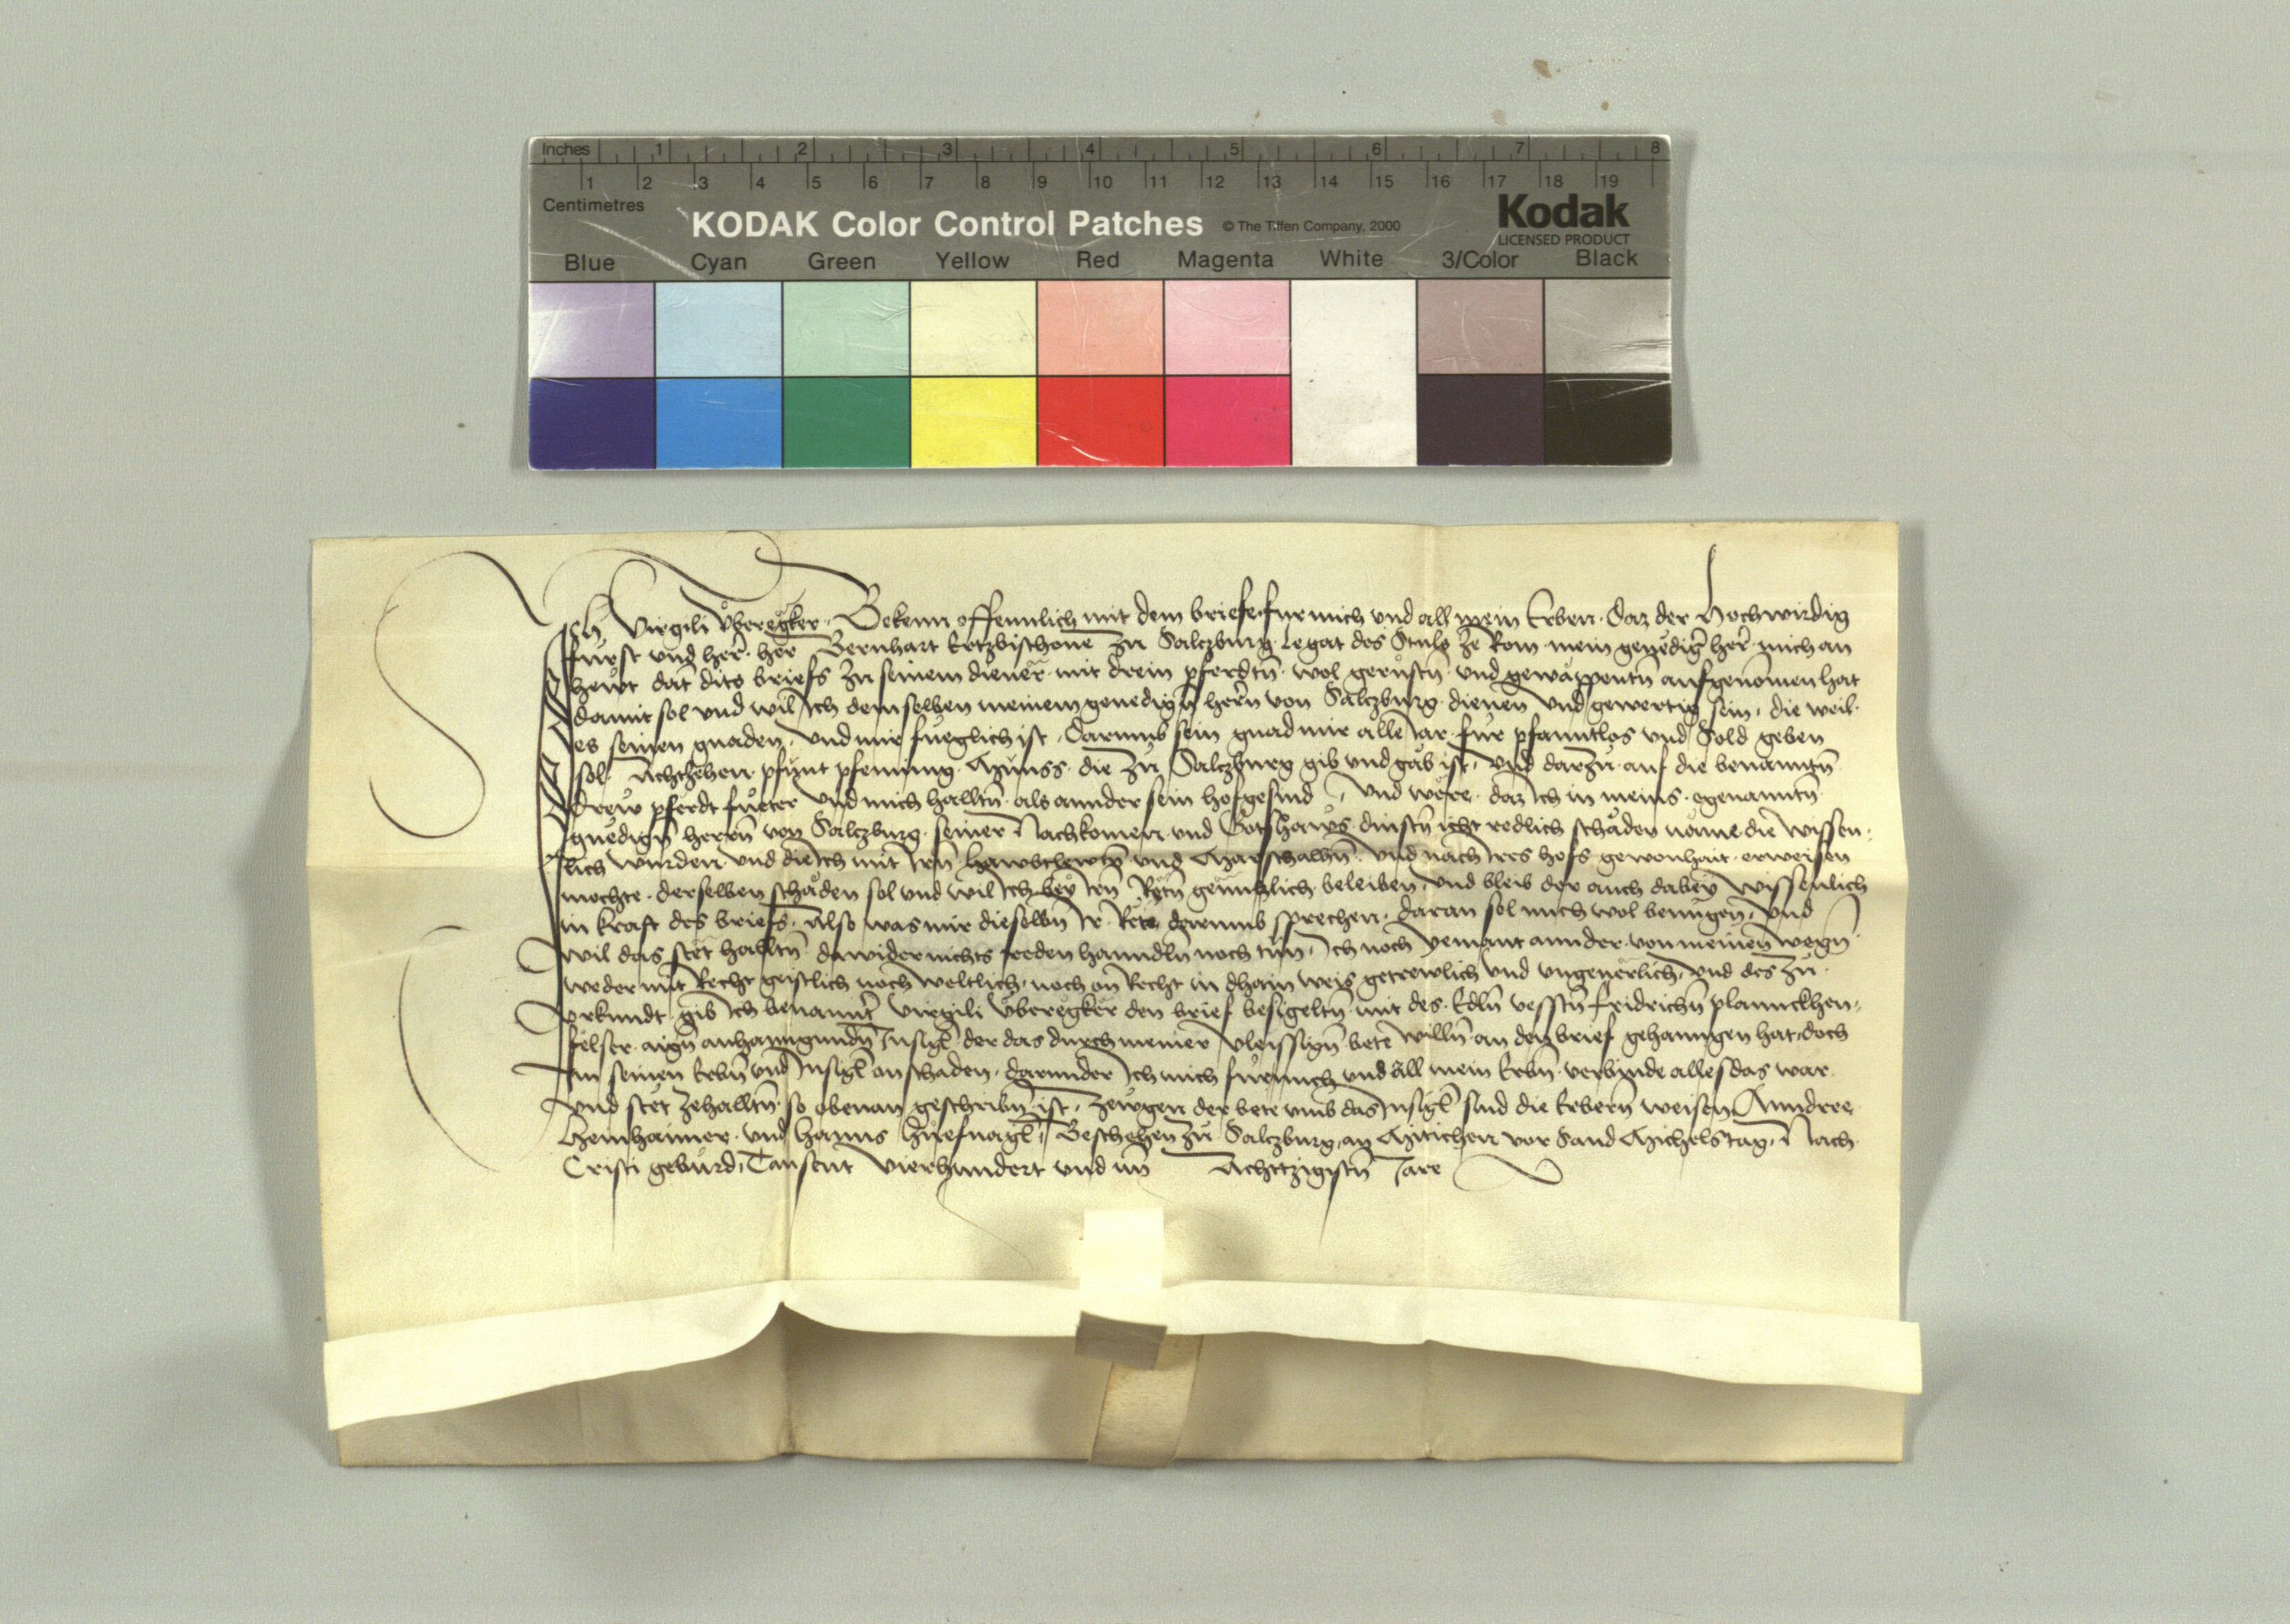 Inches 1 2 3 4 5 6 7 8
1 2 3 4 5 6 7 8 9 10 11 12 13 14 15 16 17 18 19
Centimetres
KODAK Color Control Patches © The Tiffen Company, 2000 Kodak
LICENSED PRODUCT
Blue Cyan Green Yellow Red Magenta White 3/Color Black
Ich Virgili Überegker. Bekenn offennlich mit dem briefe fur mich und all mein Erben. Daz der Hochwirdig
fürst und her̄. her Bernhart Ertzbischoue zu Salczburg. Legat des Stuls ze Rom. mein genediḡ her̄. mich an
hewt dat dits briefs zu seinem diener. mit drein pferdtn̄. wol gerüstn̄. und gewappentn̄ aufgenomen hat
damit sol und wil Ich demselben meinem genedign̄ hern̄ von Salczburg. dienen und gewertig sein. die weil.
es seinen gnaden. und mir fueglich ist. Darumb sein gnad mir alle Jar. für pfanntlos und Sold geben
sol. Achtzehen. pfunt pfenning. Münss. die zu Salczburg gib und gäb ist. und darzu. auf die benanntn̄
drew pferdt fueter und mich halltn̄. als annder sein hofgesind. und were. daz Ich in meins. egenanntn̄
gnedign̄ herrn̄ von Salczburg. seiner Nachkomen. und Gotshaws. dinstn̄ icht redlich schäden näme die wissen-
lich wurden und die Ich mit irn̄ hawbtlewtn̄ und Marschalhn̄. und nach irs hofs gewonhait. erweisen
mochte. derselben schäden sol und wil Ich bey irn̄ Retn̄ genntzlich beleiben. und bleib der auch dabey wissenlich
in kraft des briefs. Also was mir dieselbn̄ Ir. Rete darumb sprechen. daran sol mich wol benügen. und
wil das stet halltn̄ dawider nichts reden hanndln̄ noch tun. Ich noch yemant annder. von meinen wegn̄
weder mit Recht geistlich noch weltlich. noch on Recht in dhain weis getrewlich und ungeuerlich. und des zu.
vrkundt. gib Ich benannt̄ Virgili Überegker den brief besigeltn̄. mit des. Edln̄ vesstn̄ Fridrichn̄ plannckhen-
felser. aign̄ anhanngundn̄ Insigl̄ der das durch meiner vleissign̄ bete willn̄ an den brief gehanngen hat. doch
Im seinen Erbn̄ und Insigl̄ on schaden. darunder Ich mich für mich und all mein Erbn̄. verbinde alles das war.
und stet zehalltn̄. so obenan geschribn̄ ist. zewgen der bete umb das Insigl̄ sind die Erbern̄ weisen Anndree
und Hanns Huefnagl̄. Beschehen zu Salczburg. an Mitichen vor Sand Michelstag. Nach
Cristi geburd. Tausent Vierhundert und im̄ Achttzigistn̄ Jare